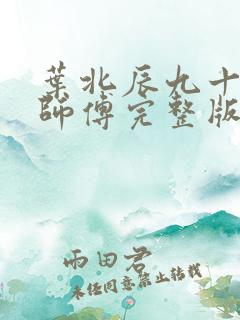 葉北辰九十
師傅完整版
雨田君
未經同意禁止轉載